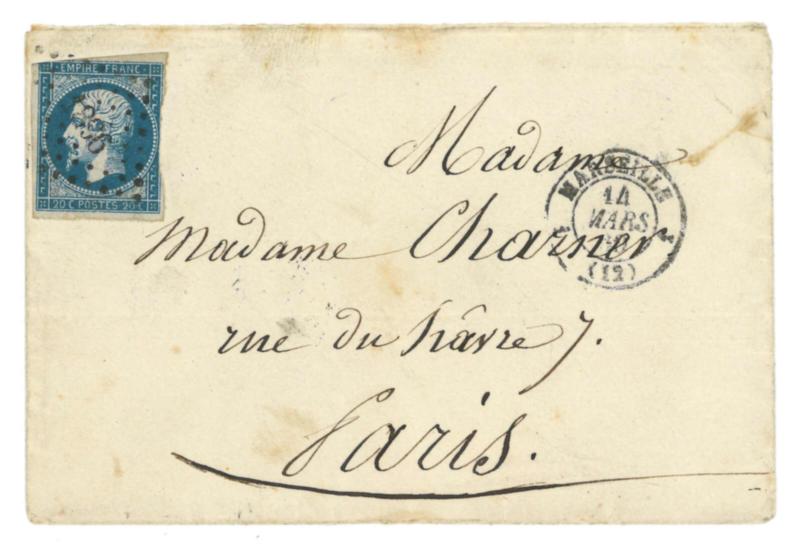 EMPIRE FRANC
20 C POSTES 20 C
Madame
Madame Charner
rue du hâvre 7.
Paris.
MARSEILLE
14
MARS
(12)